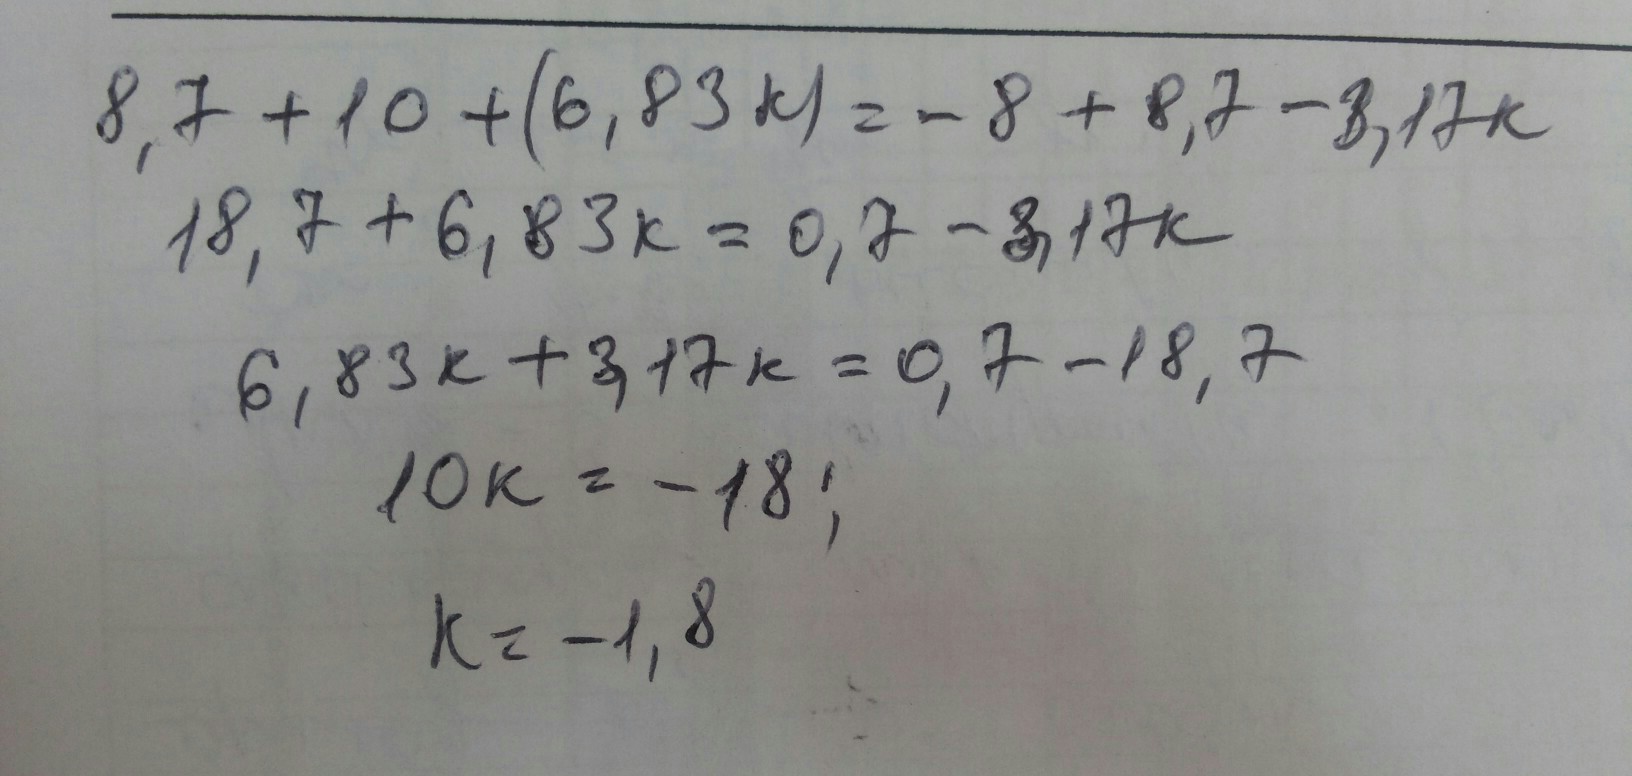 8,7 + 10 + (6,83к) = - 8 + 8,7 - 3,17к
18,7 + 6,83к = 0,7 - 3,17к
6,83к + 3,17к = 0,7 - 18,7
10к = - 18;
к = - 1,8